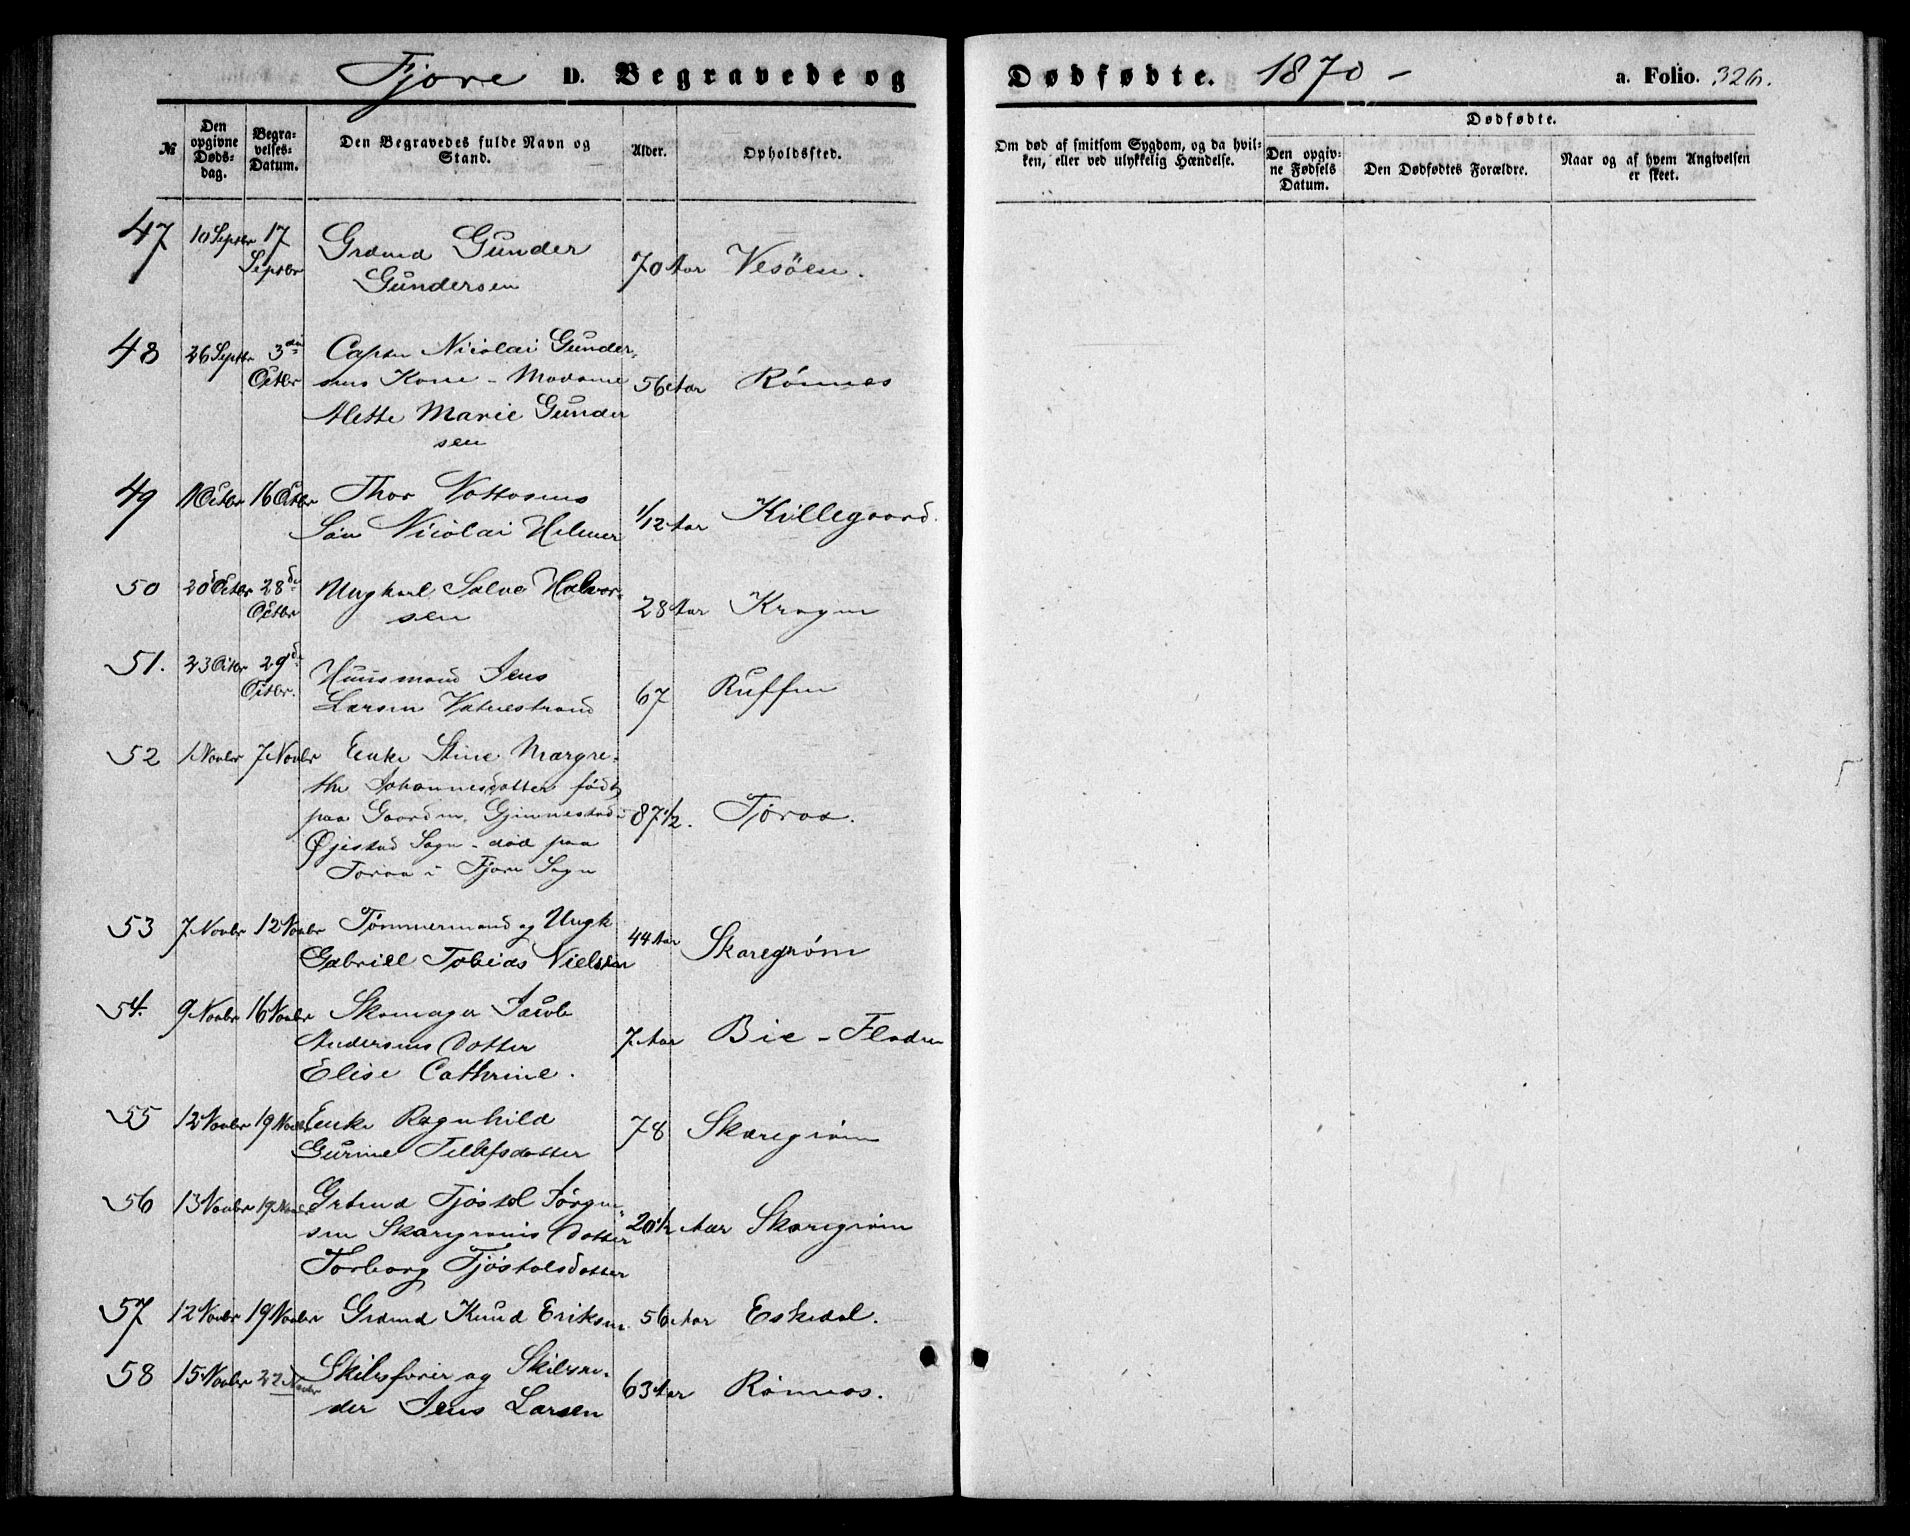 Fjære D. Begravede og Dødfødte. 1870 - a. Folio. 326.
№
Den opgivne Døds-dag.
Begra-velses-Datum.
Den Begravedes fulde Navn og Stand.
Alder.
Opholdssted.
Om død af smitsom Sygdom, og da hvil-
ken, eller ved ulykkelig Hændelse.
Dødfødte.
Den opgiv-
ne Fødsels
Datum.
Den Dødfødtes Forældre.
Naar og af hvem Angivelsen
er skeet.
47 10 Septbr 17 Septbr Grdmd Gunder
Gundersen 70 Aar Vesöen.
48 26 Septbr 3die Octbr Captn Nicolai Gunder-
sens Kone - Madame
Alette Marie Gunder
sen 56 Aar Rönnes
49 1 Octbr 16 Octbr Thor Nottosens
Søn Nicolai Helmer 1/12 Aar Killegaard.
50 20 Octbr 28de Octbr Ungkarl Salve Halvor-
sen 28 Aar Kragen
51. 23 Octbr 29de Octbr. Huusmand Jens
Larsen Vatnestrand 67 Ruffen
52 1 Novbr 7 Novbr Enke Stine Margre-
the Johannesdatter født
paa Gaarden Gjennestad i
Øjestad Sogn - død paa
Toraa i Fjære Sogn 87 1/2. Töraa.
53 7 Novbr 12 Novbr Tømmermand og Ungk
Gabriel Tobias Nielsen 44 Aar Skaregrøm
54. 9 Novbr 16 Novbr Skomager Jacob
Andersens Datter
Elise Cathrine. 7 Aar Bie - Fladen
55 12 Novbr 19 Novbr Enke Ragnhild
Gurine Tellefsdatter 78 Skaregrøm
56 13 Novbr 19 Novbr Grdmd Tjøstol Jørgen-
sen Skaregrøms Datter
Torborg Tjøstolsdatter 20 1/2 Aar Skaregrøm
57 12 Novbr 19 Novbr Grdmd Knud Eriksen 56 Aar Eskedal.
58 15 Novbr 22 Novbr Skibsfører og Skibsre-
der Jens Larsen 63 Aar Rönnes.